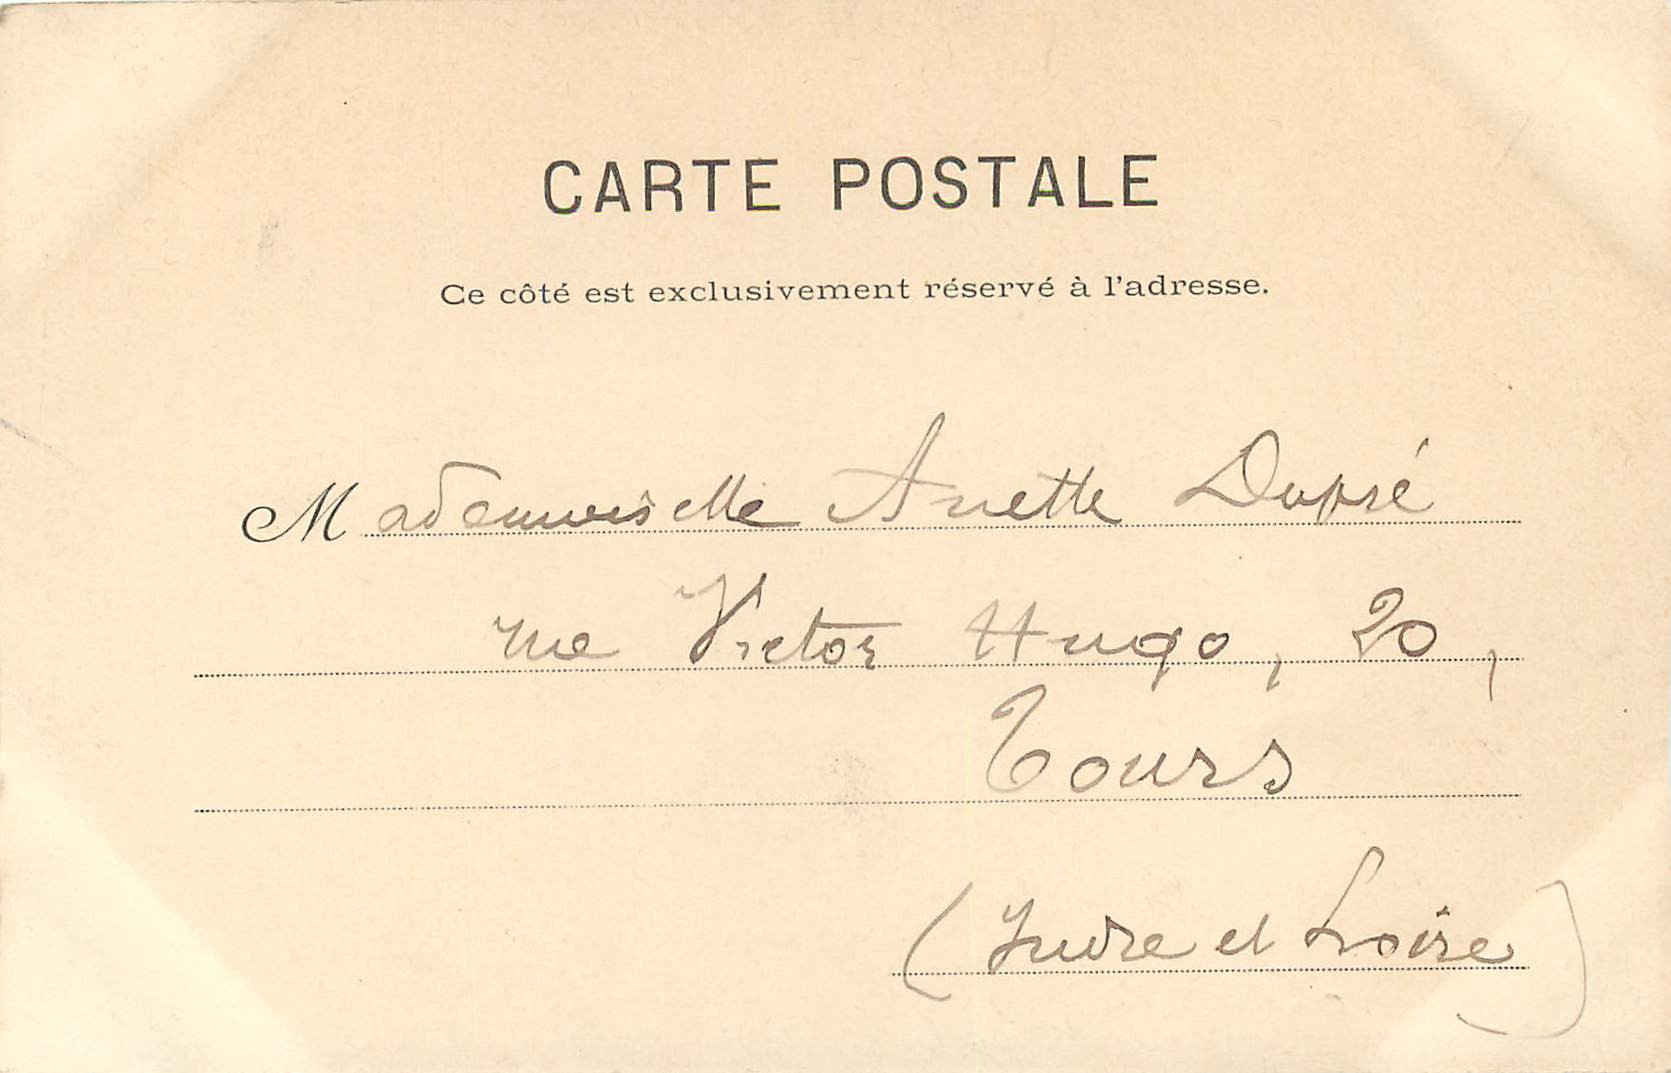 CARTE POSTALE
Ce côté est exclusivement réservé à l'adresse.
Mademoiselle Anette Dupré
rue Victor Hugo, 20,
Tours
(Indre et Loire)